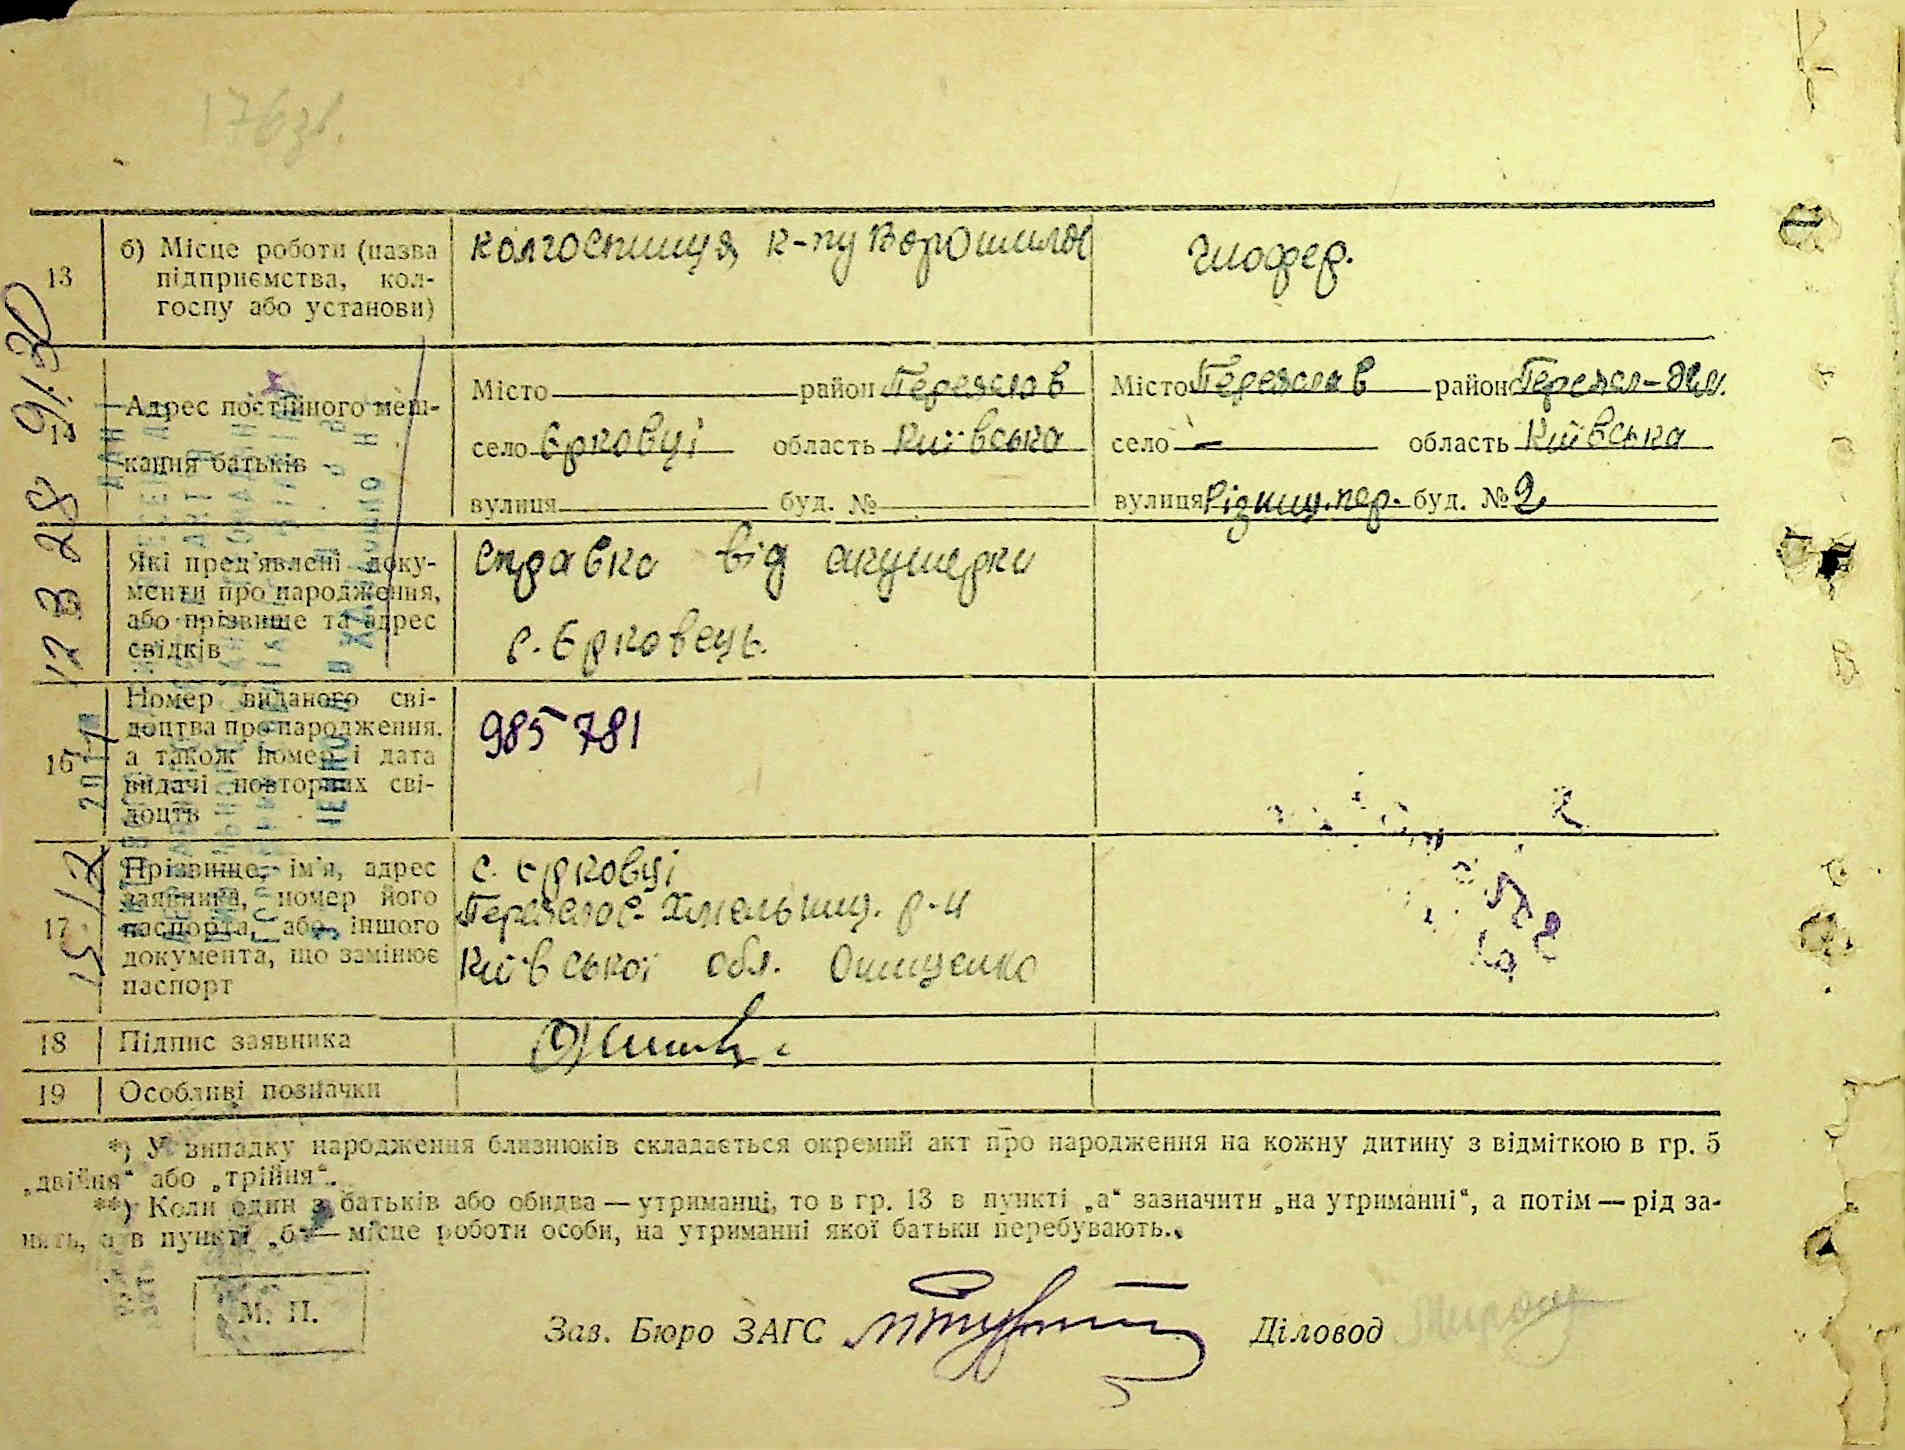 13
б) Місце роботи (назва
підприємства, кол-
госпу або установи)
колгоспниця, к-пу Ворошилова
шофер.
14
Адрес постійного меш-
кання батьків
Місто район Переяслав
село Єрковці область Київська
вулиця буд. №
Місто Переяслав район Переяс-Хм.
село — область Київська
вулиця пер. буд. № 2
Які пред'явлені доку-
менти про народження,
або прізвище та адрес
свідків
справка від акушерки
с. Єрковець.
16
Номер виданого сві-
доцтва про народження,
а також номер і дата
видачі повторних сві-
доцтв
985781
17
Прізвище, ім'я, адрес
заявника, номер його
паспорта, або іншого
документа, що замінює
паспорт
с. Єрковці
Переяслав-Хмельниц. р-н
Київської обл. Онищенко
18 Підпис заявника
19 Особливі позначки
*) У випадку народження близнюків складається окремий акт про народження на кожну дитину з відміткою в гр. 5
„двійня“ або „трійня“.
**) Коли один з батьків або обидва — утриманці, то в гр. 13 в пункті „а“ зазначити „на утриманні“, а потім — рід за-
нять, а в пункті „б“ — місце роботи особи, на утриманні якої батьки перебувають.
М. П.
Зав. Бюро ЗАГС Діловод